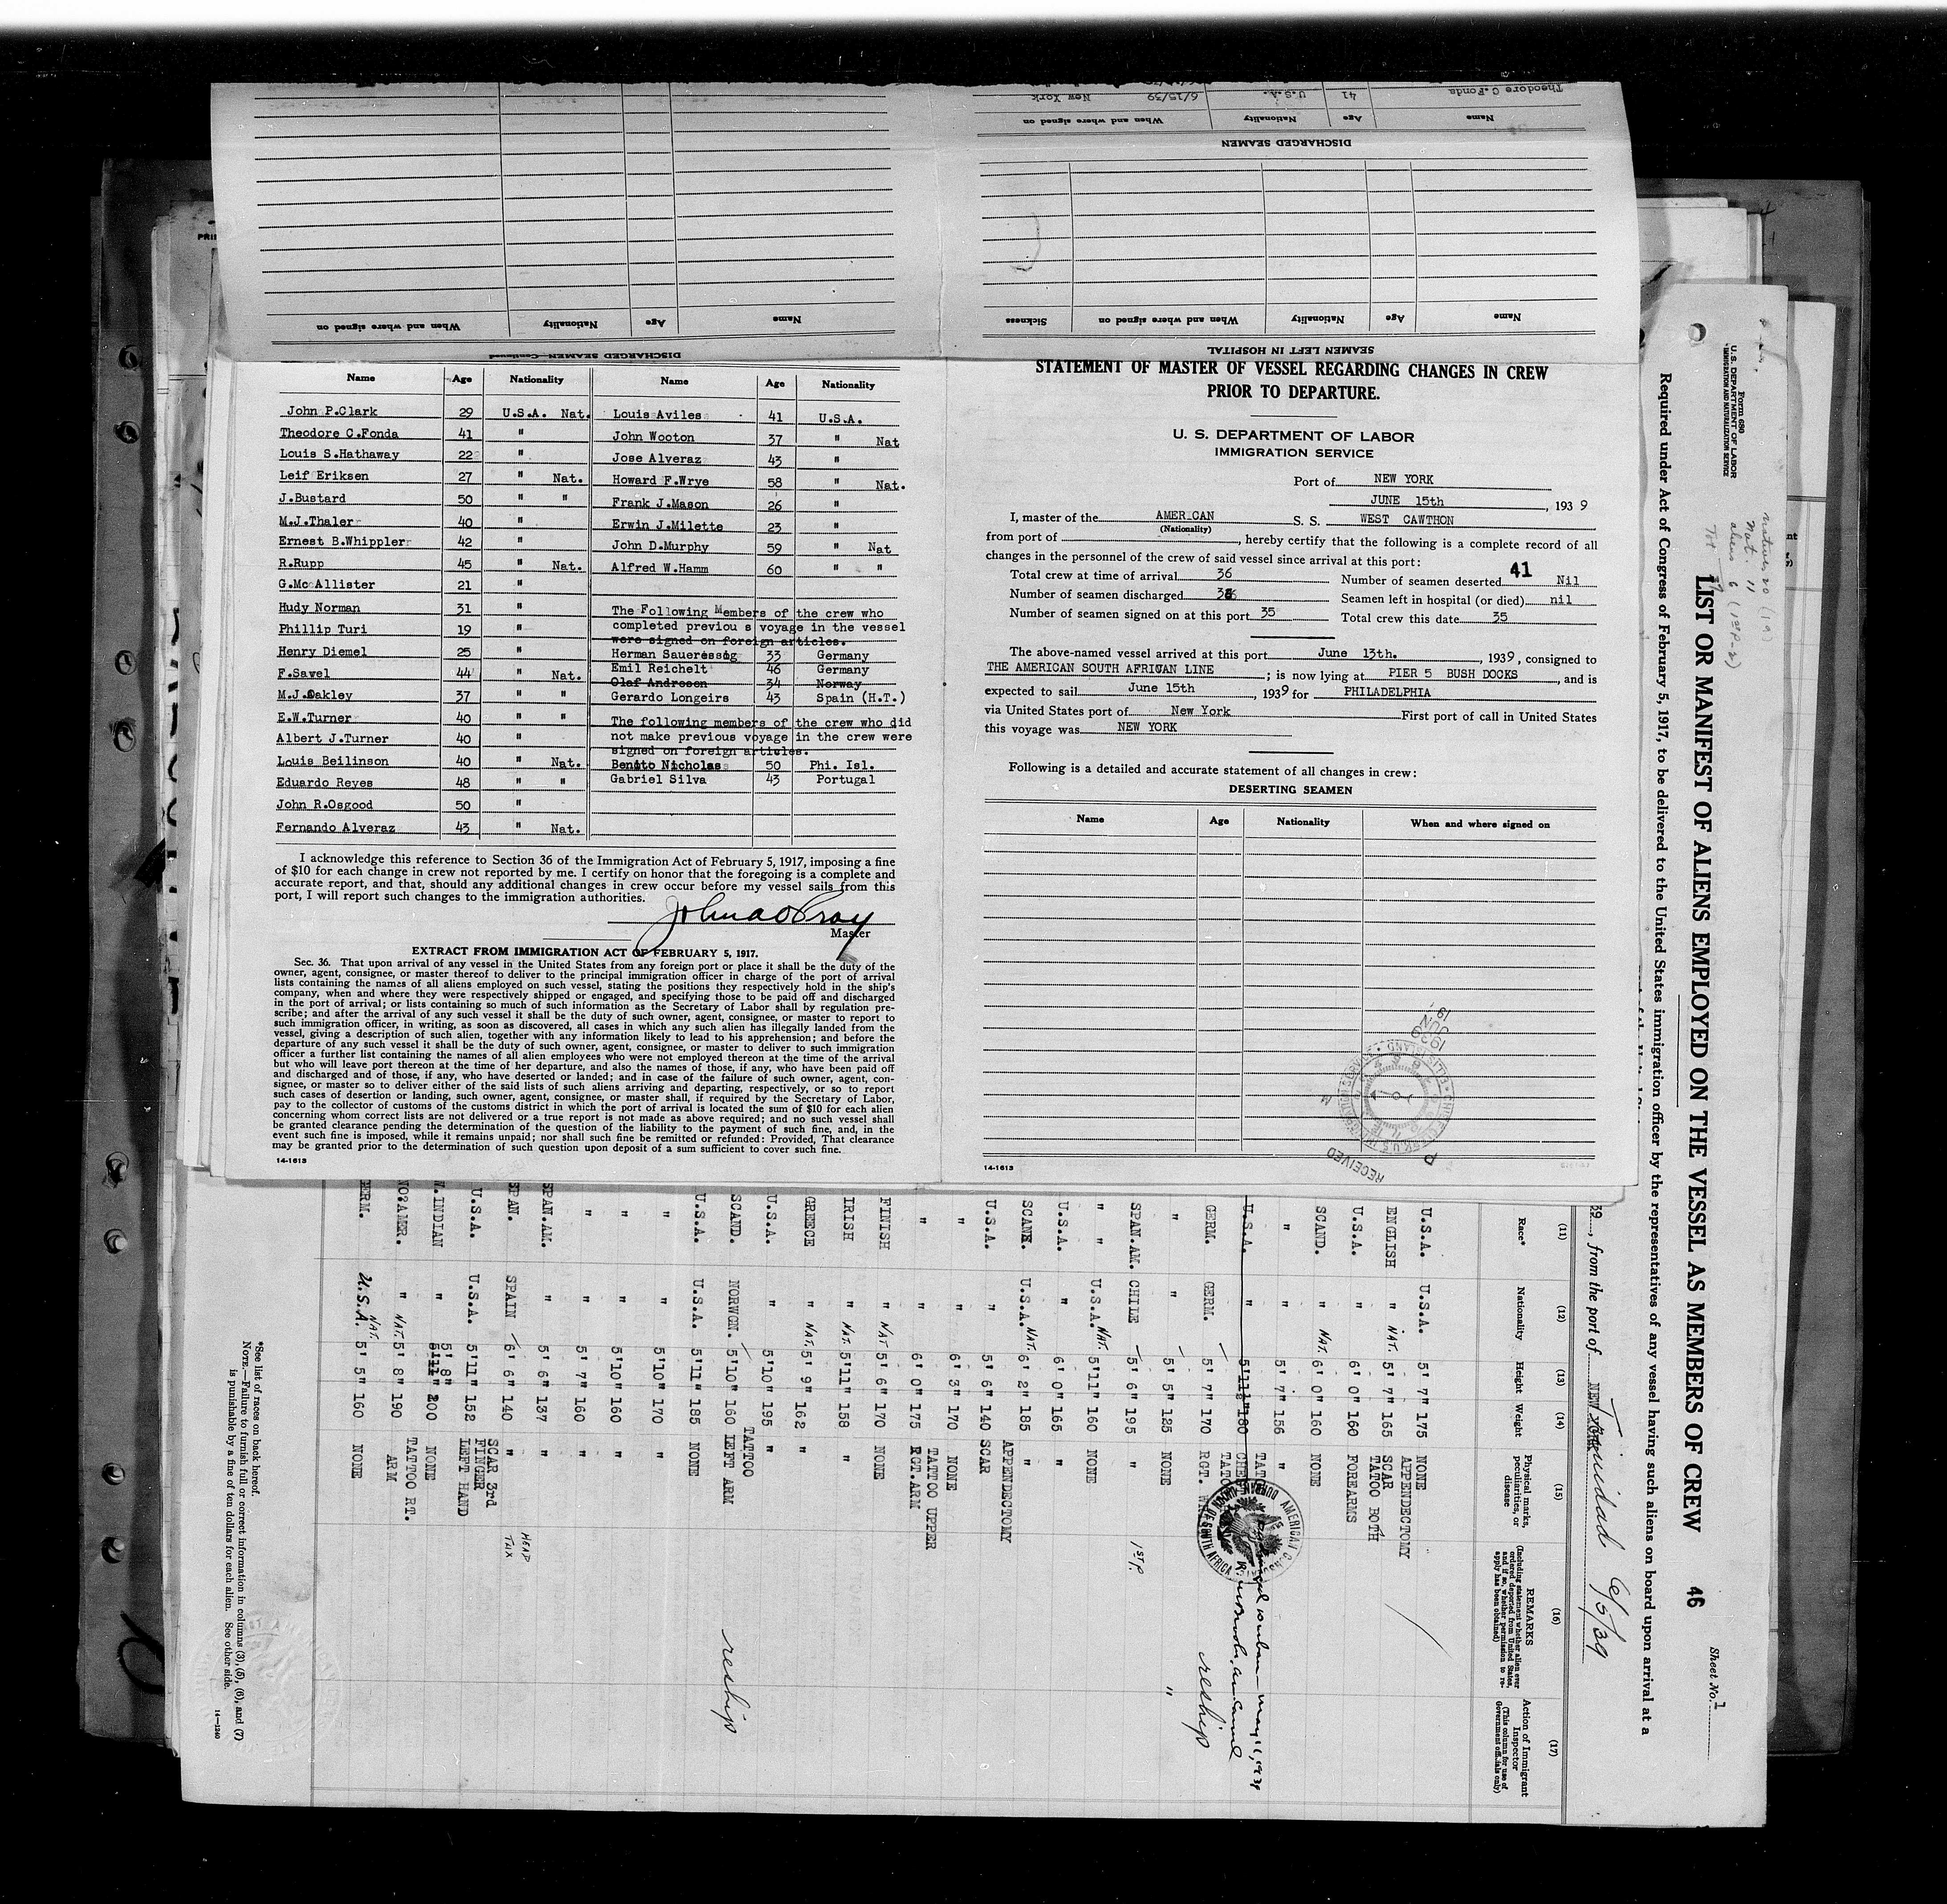 Theodore C.Fonda 41 U.S.A. 6/15/39 New York
Name Age Nationality When and where signed on
DISCHARGED SEAMEN
Name Age Nationality When and where signed on Sickness
SEAMEN LEFT IN HOSPITAL
Name Age Nationality When and where signed on
DISCHARGED SEAMEN—Continued
Name Age Nationality Name Age Nationality
John P.Clark 29 U.S.A. Nat. Louis Aviles 41 U.S.A.
Theodore C.Fonda 41 " John Wooton 37 " Nat
Louis S.Hathaway 22 " Jose Alveraz 43 "
Leif Eriksen 27 " Nat. Howard F.Wrye 58 " Nat.
J.Bustard 50 " " Frank J.Mason 26 "
M.J.Thaler 40 " Erwin J.Milette 23 "
Ernest B.Whippler 42 " John D.Murphy 59 " Nat
R.Rupp 45 " Nat. Alfred W.Hamm 60 " "
G.McAllister 21 "
Hudy Norman 31 " The Following Members of the crew who
Phillip Turi 19 " completed previou s voyage in the vessel
were signed on foreign articles.
Henry Diemel 25 " Herman Saueressig 33 Germany
F.Savel 44 " Nat. Emil Reichelt 46 Germany
Olaf Andresen 34 Norway
M.J.Oakley 37 " " Gerardo Longeirs 43 Spain (H.T.)
E.W.Turner 40 " " The following members of the crew who did
Albert J.Turner 40 " not make previous voyage in the crew were
signed on foreign articles.
Louis Beilinson 40 " Nat. Benito Nicholas 50 Phi. Isl.
Eduardo Reyes 48 " " Gabriel Silva 43 Portugal
John R.Osgood 50 "
Fernando Alveraz 43 " Nat.
I acknowledge this reference to Section 36 of the Immigration Act of February 5, 1917, imposing a fine
of $10 for each change in crew not reported by me. I certify on honor that the foregoing is a complete and
accurate report, and that, should any additional changes in crew occur before my vessel sails from this
port, I will report such changes to the immigration authorities.
Master
EXTRACT FROM IMMIGRATION ACT OF FEBRUARY 5, 1917.
Sec. 36. That upon arrival of any vessel in the United States from any foreign port or place it shall be the duty of the
owner, agent, consignee, or master thereof to deliver to the principal immigration officer in charge of the port of arrival
lists containing the names of all aliens employed on such vessel, stating the positions they respectively hold in the ship's
company, when and where they were respectively shipped or engaged, and specifying those to be paid off and discharged
in the port of arrival; or lists containing so much of such information as the Secretary of Labor shall by regulation pre-
scribe; and after the arrival of any such vessel it shall be the duty of such owner, agent, consignee, or master to report to
such immigration officer, in writing, as soon as discovered, all cases in which any such alien has illegally landed from the
vessel, giving a description of such alien, together with any information likely to lead to his apprehension; and before the
departure of any such vessel it shall be the duty of such owner, agent, consignee, or master to deliver to such immigration
officer a further list containing the names of all alien employees who were not employed thereon at the time of the arrival
but who will leave port thereon at the time of her departure, and also the names of those, if any, who have been paid off
and discharged and of those, if any, who have deserted or landed; and in case of the failure of such owner, agent, con-
signee, or master so to deliver either of the said lists of such aliens arriving and departing, respectively, or so to report
such cases of desertion or landing, such owner, agent, consignee, or master shall, if required by the Secretary of Labor,
pay to the collector of customs of the customs district in which the port of arrival is located the sum of $10 for each alien
concerning whom correct lists are not delivered or a true report is not made as above required; and no such vessel shall
be granted clearance pending the determination of the question of the liability to the payment of such fine, and, in the
event such fine is imposed, while it remains unpaid; nor shall such fine be remitted or refunded: Provided, That clearance
may be granted prior to the determination of such question upon deposit of a sum sufficient to cover such fine.
14-1613
STATEMENT OF MASTER OF VESSEL REGARDING CHANGES IN CREW
PRIOR TO DEPARTURE.
U. S. DEPARTMENT OF LABOR
IMMIGRATION SERVICE
Port of NEW YORK
JUNE 15th, 1939
I, master of the AMERICAN S. S. WEST CAWTHON
(Nationality)
from port of , hereby certify that the following is a complete record of all
changes in the personnel of the crew of said vessel since arrival at this port:
41
Total crew at time of arrival 36 Number of seamen deserted Nil
Number of seamen discharged 36 Seamen left in hospital (or died) nil
Number of seamen signed on at this port 35 Total crew this date 35
The above-named vessel arrived at this port June 13th. , 1939, consigned to
THE AMERICAN SOUTH AFRICAN LINE ; is now lying at PIER 5 BUSH DOCKS , and is
expected to sail June 15th , 1939 for PHILADELPHIA
via United States port of New York First port of call in United States
this voyage was NEW YORK
Following is a detailed and accurate statement of all changes in crew:
DESERTING SEAMEN
Name Age Nationality When and where signed on
RECEIVED
1939 JUN
14-1613
Form 680
U. S. DEPARTMENT OF LABOR
IMMIGRATION AND NATURALIZATION SERVICE
Nat. 11
aliens 6 (1st P-2)
LIST OR MANIFEST OF ALIENS EMPLOYED ON THE VESSEL AS MEMBERS OF CREW 46
Sheet No. 1
Required under Act of Congress of February 5, 1917, to be delivered to the United States immigration officer by the representatives of any vessel having such aliens on board upon arrival at a
39, from the port of NEW YORK Trinidad 6/5/39
(11) (12) (13) (14) (15) (16) (17)
Race* Nationality Height Weight Physical marks, peculiarities, or disease REMARKS (Including statement whether alien ever ordered deported from United States, and if so, whether permission to reapply has been obtained) Action of Immigrant Inspector (This column for use of Government officials only)
U.S.A. U.S.A. 5' 7" 175 NONE
ENGLISH " NAT. 5' 7" 165 APPENDECTOMY SCAR
U.S.A. " 6' 0" 160 TATOO BOTH FOREARMS
SCAND. " NAT. 6' 0" 160 NONE
" " 5' 7" 156
U.S.A. " 5'11½" 180
GERM. GERM. 5' 7" 170 reship
" " 5' 5" 125 NONE "
SPAN.AM. CHILE 5' 6" 195 " 1ST P.
" U.S.A. NAT. 5'11" 160 NONE
U.S.A. " 6' 0" 165 "
SCAN. U.S.A. NAT. 6' 2" 185 "
U.S.A. " 5' 6" 140 APPENDECTOMY SCAR
" " 6' 3" 170 NONE
" " 6' 0" 175 TATTOO UPPER RGT.ARM
FINISH " NAT. 5' 6" 170 NONE
IRISH " NAT. 5'11" 158 "
GREECE " NAT. 5' 9" 162 "
U.S.A. " 5'10" 195 "
SCAND. NORWGN. 5'10" 160 TATTOO LEFT ARM reship
U.S.A. U.S.A. 5'11" 185 NONE
" " 5'10" 170 "
" " 5'10" 160 "
" " 5' 7" 160 "
SPAN.AM. " 5' 6" 137 "
SPAN. SPAIN 6' 6" 140 " HEAD TAX
U.S.A. U.S.A. 5'11" 152 SCAR 3rd FINGER LEFT HAND
W.INDIAN " 5' 8" 200 NONE
NO?AMER. " NAT. 5' 8" 190 TATTOO RT. ARM
GERM. U.S.A. NAT. 5' 5" 160 NONE
*See list of races on back hereof.
NOTE.—Failure to furnish full or correct information in columns (3), (5), (6), and (7)
is punishable by a fine of ten dollars for each alien. See other side.
14—1240